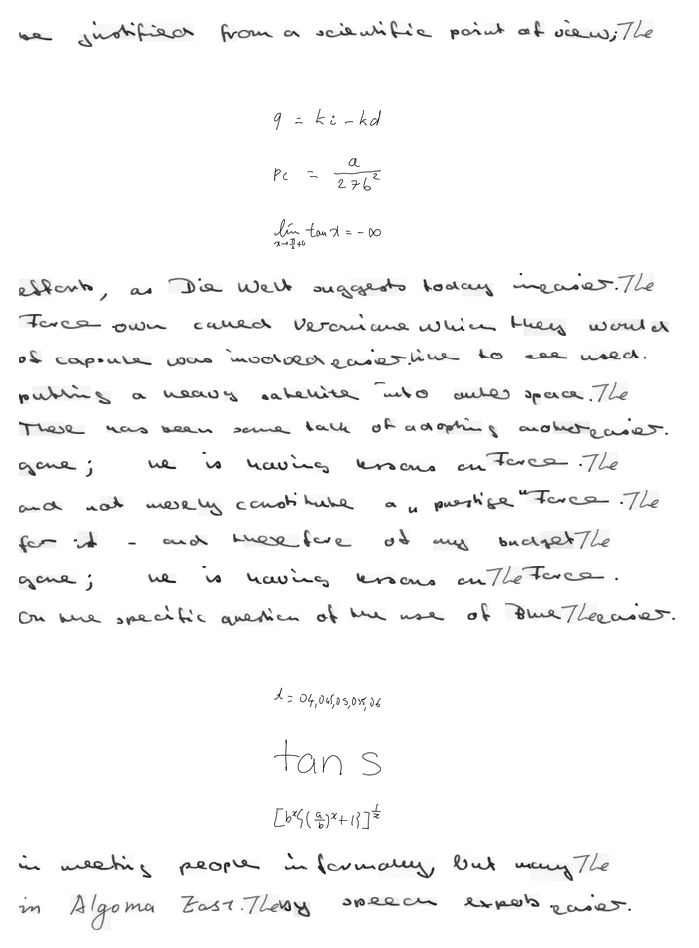 be justified from a scientific point of view; The
q = ki - kd
Pc = \frac{a}{27b^2}
\lim_{x \to \frac{\pi}{2}+0} \tan x = -\infty
efforts, as Die Welt suggests today in easier. The
Force own called Veroniane which they would
of capsule was involved easier. line to see used.
putting a heavy satellite into outer space. The
There has been some talk of adopting another easier.
game; he is having lessons on Force. The
and not merely constitute a " prestige " Force. The
for it - and therefore of any budget The
game; he is having lessons on The Force.
On the specific question of the use of Blue The easier.
tan s
[b^x\{(\frac{a}{b})^x+1\}]^{\frac{1}{x}}
in meeting people informally, but many The
in Algoma East. The by speech easier.